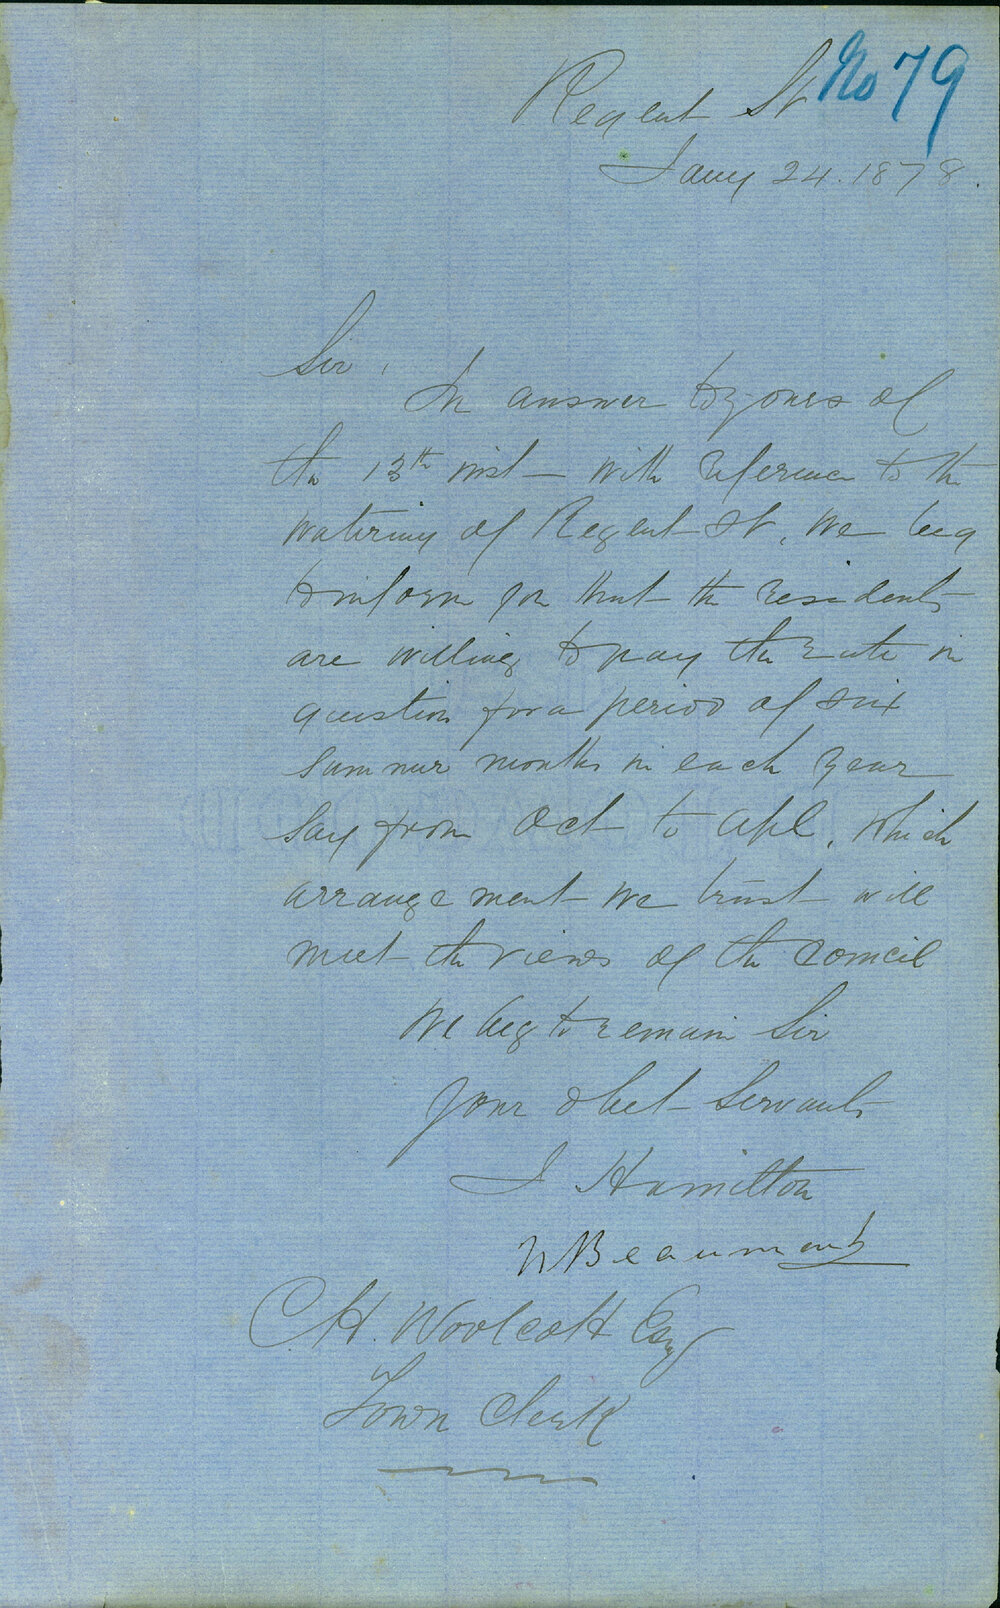 No 79
Regent St
Jany 24. 1878.
Sir,
In answer to yours of
the 13th inst with reference to the
watering of Regent St, we beg
to inform you that the residents
are willing to pay the rate in
question for a period of six
summer months in each year
say from Oct to Apl, which
arrangement we trust will
meet the views of the Council
We beg to remain Sir
your obet Servants
J Hamilton
W Beaumont
C H. Woolcott Esq
Town Clerk